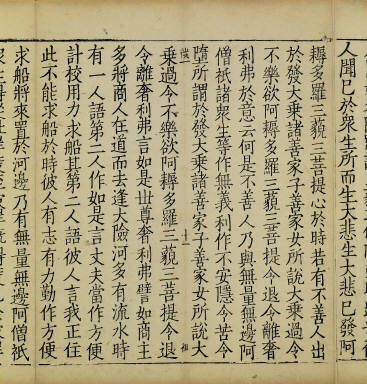 人聞已於衆生所而生大悲生大悲已發阿
耨多羅三藐三菩提心於時若有不善人出
於發大乗諸善家子善家女所說大乗過令
不樂欲阿耨多羅三藐三菩提令退令離奢
利弗於意云何是不善人乃與無量無邊阿
僧祇諸衆生等作無義利作不安隱令苦令
墮所謂於發大乗諸善家子善家女所說大
十一
乗過令不樂欲阿耨多羅三藐三菩提令退
令離奢利弗言如是世尊奢利弗譬如商主
多將商人在道而去逢大險河多有流水時
有一人語第二人作如是言丈夫當作方便
計校用力求船其第二人語彼人言我正住
此不能求船於時彼人有志有力勤作方便
求船將來置於河邊乃有無量無邊阿僧祇